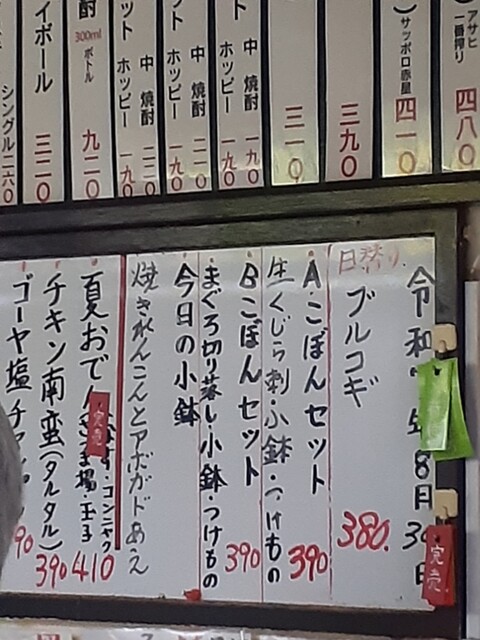 アサヒ
一番搾り
四八〇
サッポロ赤星
四一〇
三九〇
三一〇
ホッピー
中 焼酎
一九〇
一九〇
ホッピー
中 焼酎
二一〇
一九〇
ホッピー
中 焼酎
二二〇
一九〇
酎
300ml
ボトル
九二〇
イボール
三二〇
シングル二六〇
令和
年8月3
日
完売
日替り
ブルコギ
380.
A.こぼんセット
生くじら刺・小鉢・つけもの
390
Bこぼんセット
まぐろ切り落し・小鉢・つけもの
390
今日の小鉢
焼きれんこんとアボガドあえ
夏おでん
コンニャク
玉子
410
完売
チキン南蛮(タルタル)
390
ゴーヤ塩チャ
90